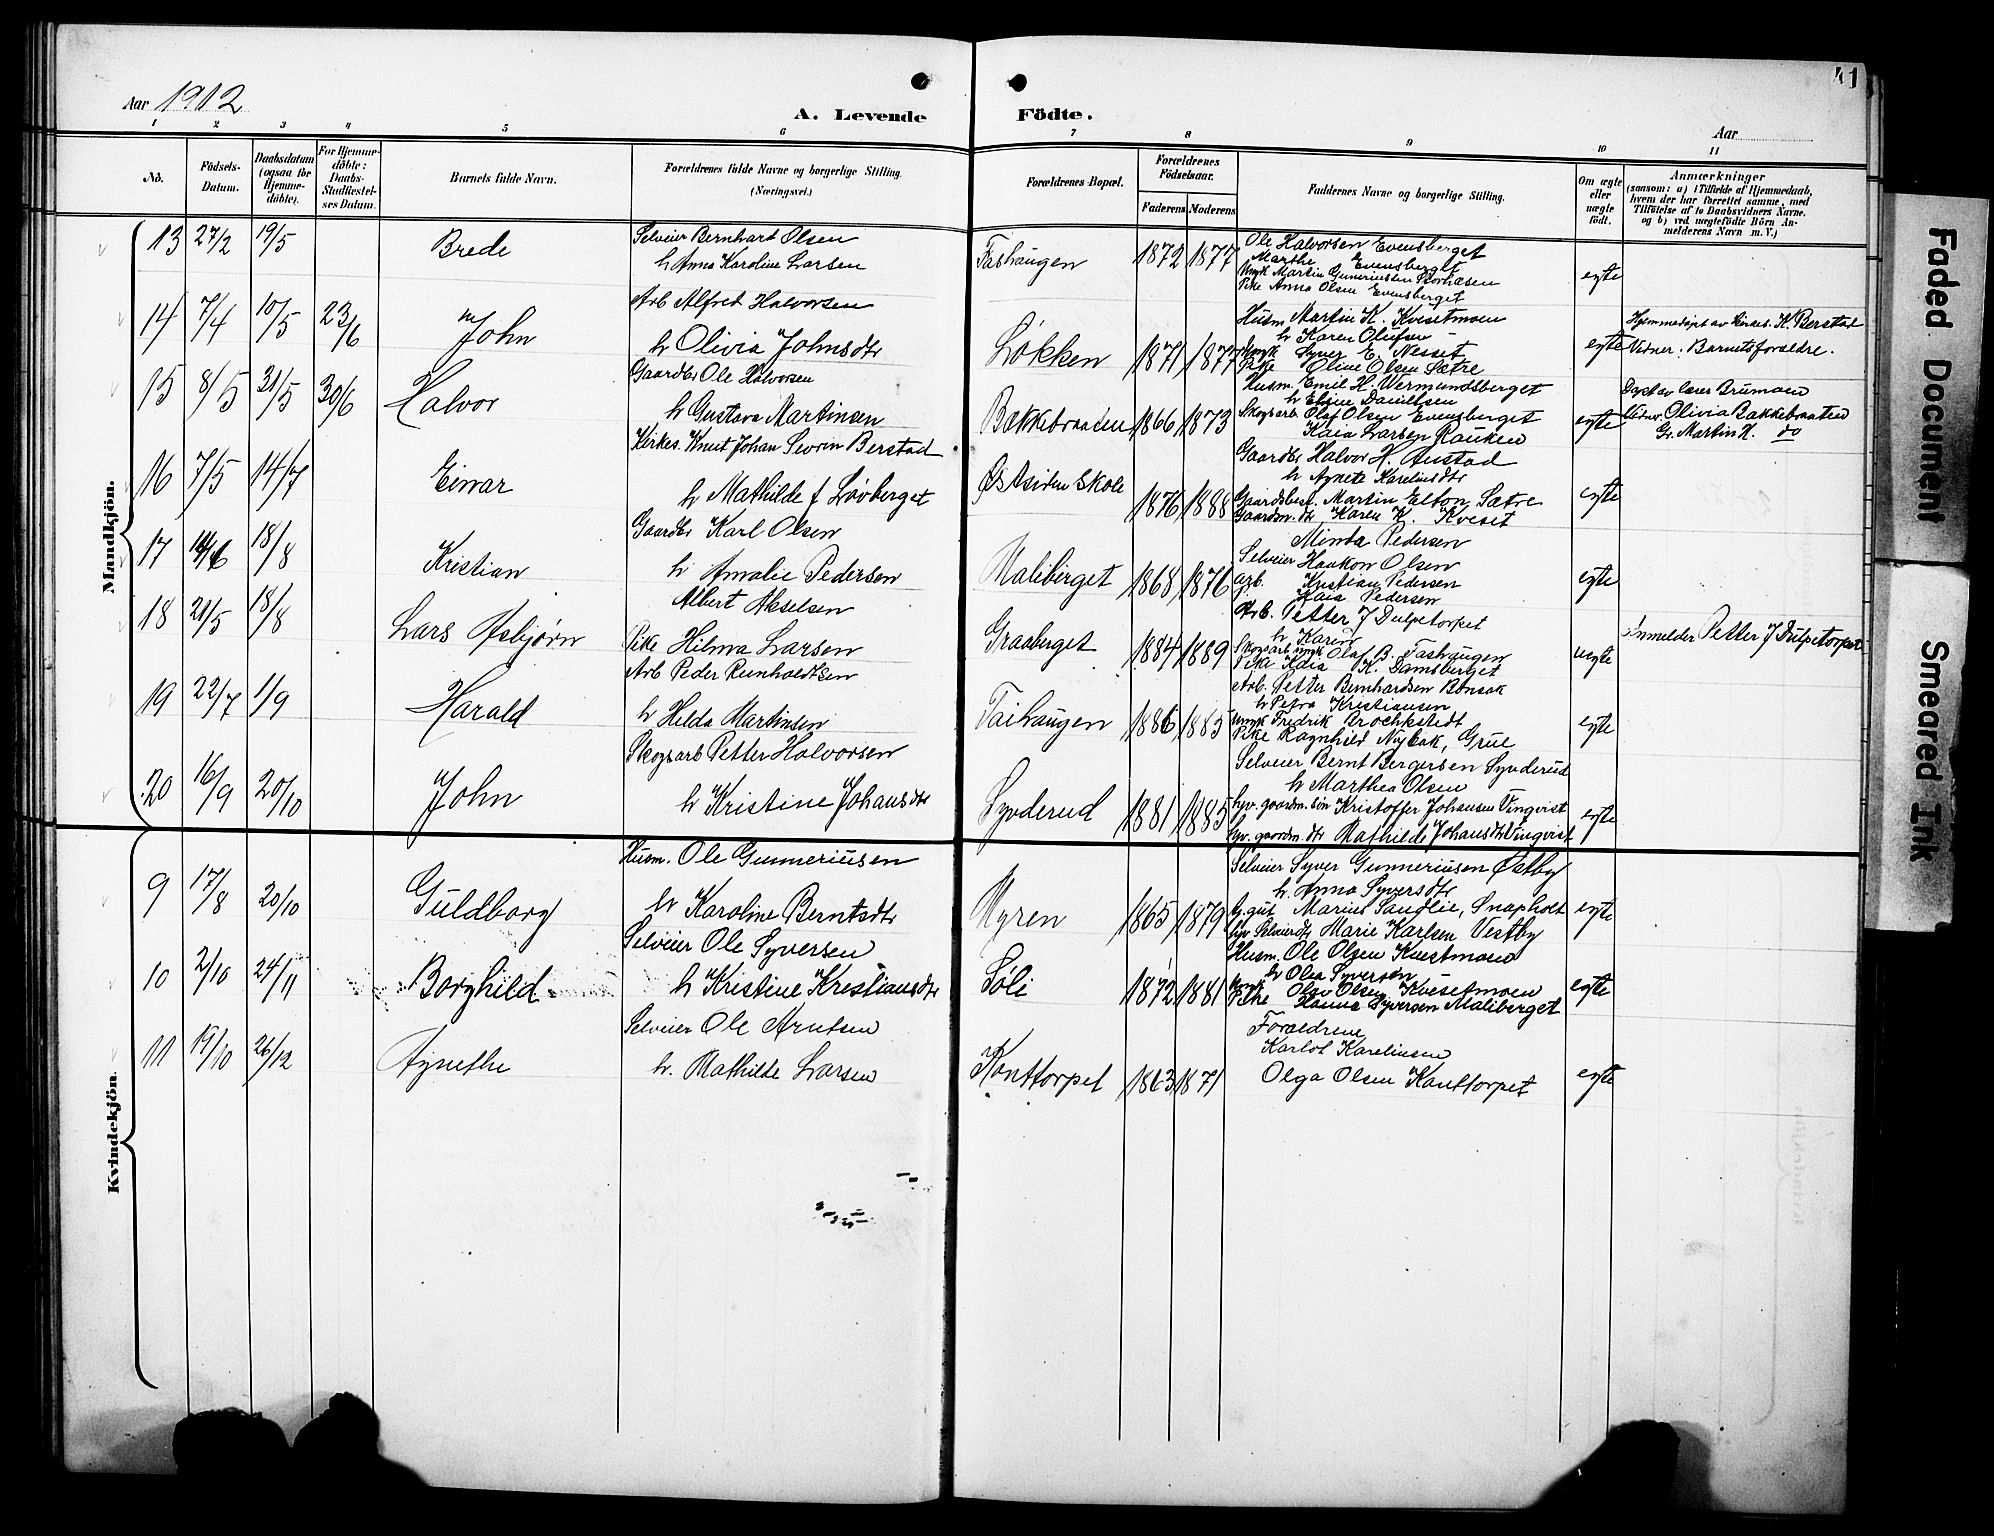 Aar 1912
A. Levende Födte.
Aar
41
1 2 3 4 5 6 7 8 9 10 11
No.
Födsels-Datum.
Daabsdatum (ogsaa för Hjemme-döbte).
For Hjemme-döbte: Daabs-Stadfæstel-ses Datum.
Barnets fulde Navn.
Forældrenes fulde Navne og borgerlige Stilling. (Næringsvei.)
Forældrenes Bopæl.
Forældrenes Födselsaar.
Faderens
Moderens
Faddernes Navne og borgerlige Stilling.
Om ægte eller uægte födt.
Anmærkninger (saasom: a) i Tilfælde af Hjemmedaab, hvem der har forrettet samme, med Tilföielse af to Daabsvidners Navne, og b) ved uægtefödte Börn An-melderens Navn m. V.)
Mandkjön.
13 27/2 19/5 Brede
Selveier Bernhart Olsen
h Anna Karoline Larsen
Tashaugen 1872 1877
Ole Halvorsen Evensberget
Marthe Evensberget
Ungk Martin Gunneriussen
Pike Anna Olsen Evensberget
egte
14 7/4 10/5 23/6 John
Arb Alfred Halvorsen
h Olivia Johnsdtr
Løkken 1871 1877
Husm Martin K. Kvesetmoen
h Karen Olufsen
Ungk Syver E. Nesset
Pike Oline Olsen Sætre
egte
Hjemmedøpt av Kirkes. K. Berstad
Vidner. Barnets forældre.
15 8/5 31/5 30/6 Halvor
Gaardbr Ole Halvorsen
h Gustava Martinsen
Bækkebraaten 1866 1873
Husm. Emil H. Wermundsberget
h Eline Danielsen
Skogsarb Olaf Olsen Evensberget
Kaia Larsen Rauken
egte
Døpt av lærer Brumoen
Vidner Olivia Bakkebraaten
Gr. Martin H. do
16 7/5 14/7 Einar
Kirkes. Knut Johan Sevrin Berstad
h Mathilde f Løvberget
Østsiden Skole 1876 1888
Gaardbr Halvor H. Austad
h Agnete Karelinsdtr
Gaardbest. Martin Elton Sætre
Gaardm. dtr Karen K. Kveset
egte
17 14/6 18/8 Kristian
Gaardbr Karl Olsen
h Amalie Pedersen
Maliberget 1868 1876
Minda Pedersen
Selveier Haakon Olsen
arb. Kristian Pedersen
Kaia Pedersen
egte
18 21/5 18/8 Lars Asbjørn
Albert Akselsen
Pike Hilma Larsen
Graaberget 1884 1889
Arb. Petter J Dulpetorpet
h Karin
Skogsarb ungk Olaf B. Tashaugen
Pike Kaia K. Damsberget
uegte
Anmelder Petter J Dulpetorpet
19 22/7 1/9 Harald
Arb Peder Reinholdtsen
h Hilda Martinsen
Taihaugen 1886 1885
Arb. Petter Bernhardsen Bonsak
h Petra Kristiansen
Ungk Fredrik Brochkstedt
Pike Ragnhild Nybak, Grue
egte
20 16/9 20/10 John
Skogsarb Petter Halvorsen
h Kristine Johansdtr
Synderud 1881 1885
Selveier Bernt Bergersen Synderud
h Marthea Olsen
hjv. gaardm. søn Kristoffer Johansen Tinqvist
hjv. gaardm. dtr Mathilde Johansdtr Tinqvist
egte
Kvindekjön.
9 17/8 20/10 Guldborg
Husm. Ole Gunneriusen
h Karoline Berntsdtr
Myren 1865 1879
Selveier Syver Gunneriusen Østby
h. Anna Syversdtr
G.gut Marius Sandlie, Snapholt
hjv Selveierdtr Marie Karlsen Vestby
egte
10 2/10 24/11 Borghild
Selveier Ole Syversen
h Kristine Kristiansdtr
Søli 1872 1881
Husm. Ole Olsen Kvesetmoen
h Olea Syversen
Ungk Olav Olsen Kvesetmoen
Pike Hanna Syversen Maliberget
egte
11 19/10 26/12 Agnethe
Selveier Ole Arntsen
h. Mathilde Larsen
Kanttorpet 1863 1871
Forældrene
Karlot Karelinsen
Olga Olsen Kanttorpet
egte
Faded Document
Smeared Ink